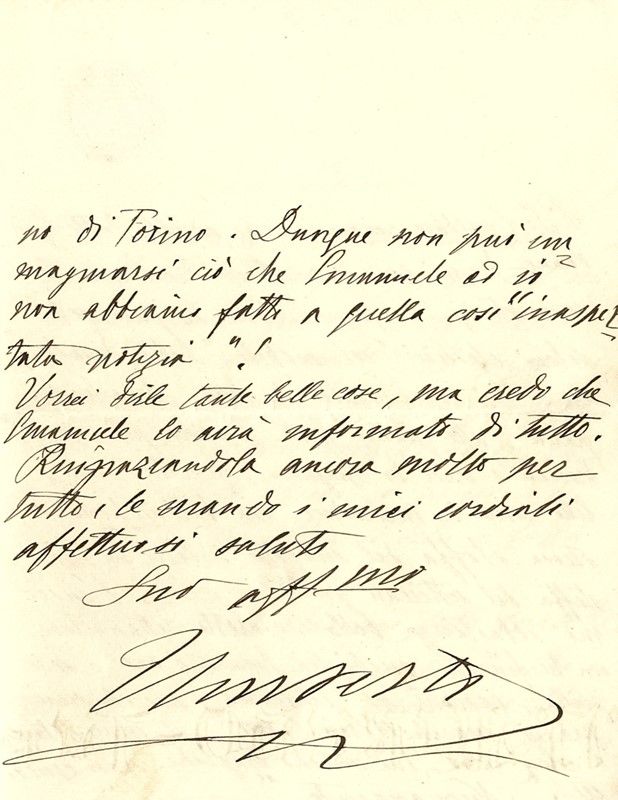 no di Torino. Dunque non può im=
maginarsi ciò che Emanuele ed io
non abbiamo fatto a quella così "inaspet=
tata notizia"!
Vorrei dirle tante belle cose, ma credo che
Emanuele lo avrà informato di tutto.
Ringraziandola ancora molto per
tutto, le mando i miei cordiali
affettuosi saluti
Suo aff.mo
Umberto